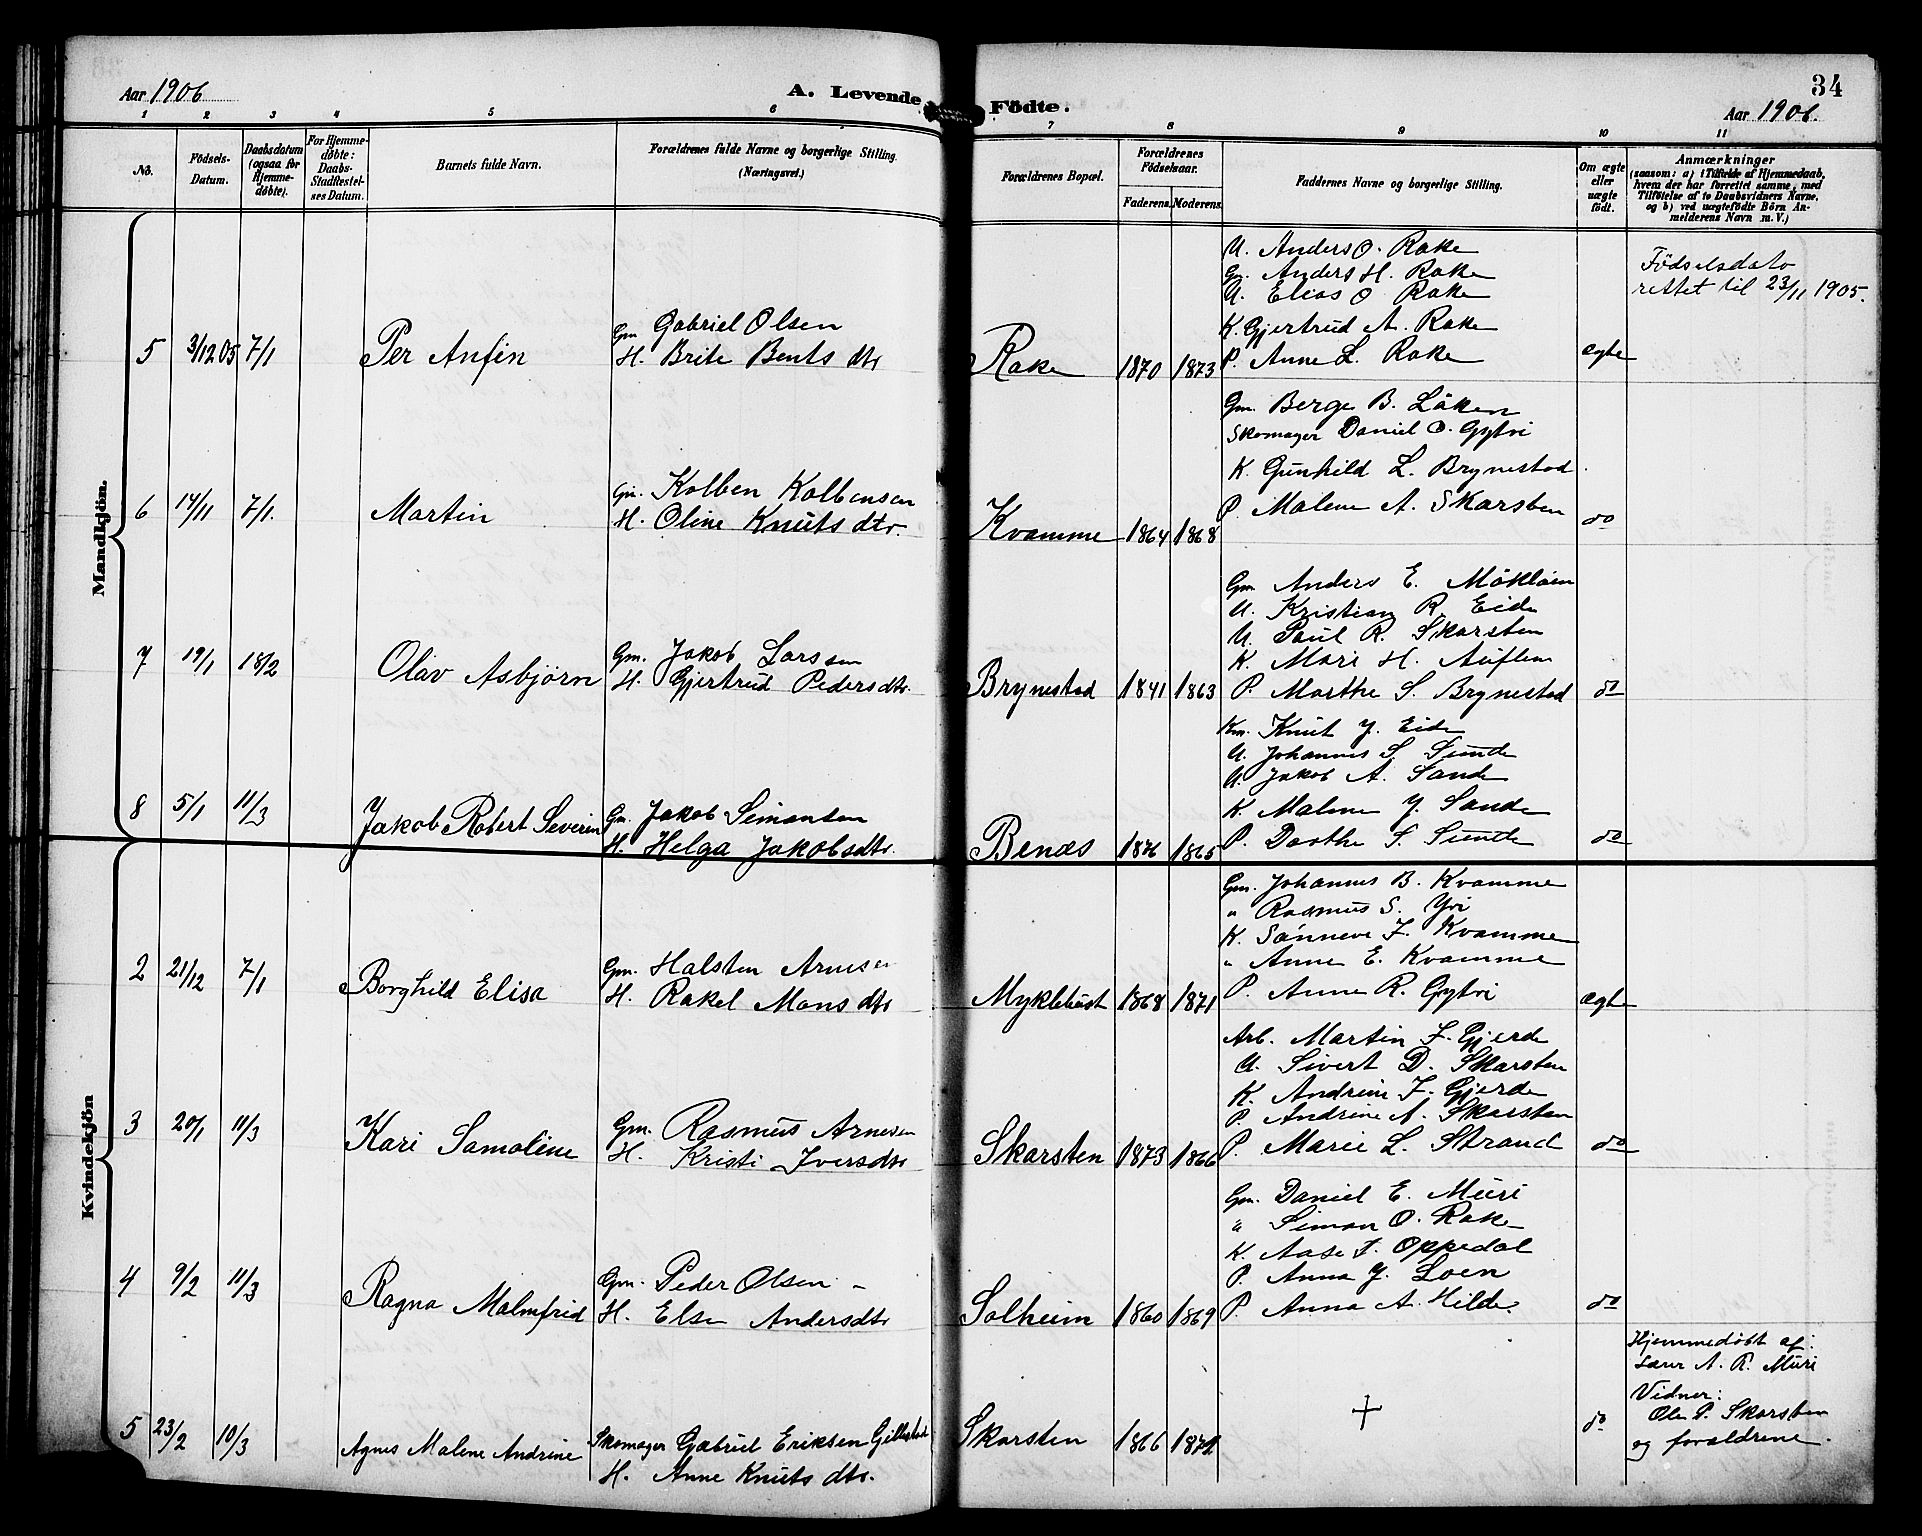 34
Aar 1906
A. Levende Födte.
Aar 1906.
1 2 3 4 5 6 7 8 9 10 11
No.
Födsels-
Datum.
Daabsdatum
(ogsaa for
Hjemme-
døbte).
For Hjemme-
døbte:
Daabs-
Stadfæstel-
ses Datum.
Barnets fulde Navn.
Forældrenes fulde Navne og borgerlige Stilling.
(Næringsvei.)
Forældrenes Bopæl.
Forældrenes
Födselsaar.
Faderens. Moderens.
Faddernes Navne og borgerlige Stilling.
Om ægte
eller
uægte
født.
Anmærkninger
(saasom: a) i Tilfælde af Hjemmedaab,
hvem der har forrettet samme, med
Tilføielse af to Daabsvidners Navne,
og b) ved uægtefødte Börn An-
melderens Navn m. V.)
Mandkjön.
5 3/12 05 7/1 Per Anfin
Gm. Gabriel Olsen
H. Brite Bents dtr
Rake 1870 1873
U. Anders O. Rake
Gm. Anders H. Rake
U. Elias O Rake
K. Gjertrud A. Rake
P. Anne L. Rake
ægte
Födselsdato
rettet til 23/11 1905.
6 14/11 7/1. Martin
Gm. Kolben Kolbensen
H. Oline Knuts dtr.
Kvamme 1864 1868
Gm. Berge B. Löken
Skomager Daniel O. Gytri
K. Gunhild L. Brynestad.
P. Malene A. Skarsten
do
7 19/1 18/2 Olav Asbjørn
Gm. Jakob Larssen
H. Gjertrud Pedersdtr.
Brynestad 1841 1863
Gm Anders E. Mökløien
U. Kristian R. Eide
U. Paul R. Skarsten
K. Mari H. Auflem
P. Marthe S. Brynestad
do
8 5/1 11/3 Jakob Robert Severin
Gm. Jakob Simonsen
H. Helga Jakobsdtr.
Benæs 1876 1865
Km. Knut J. Eide
U. Johannes S. Sunde
U. Jakob A. Sande
K. Malene J. Sande
P. Dorthe S. Sunde
do
Kvindekjön
2 21/12 7/1 Borghild Elisa
Gm. Halsten Arnesen
H. Rakel Mons dtr
Myklebust 1868 1871
Gm. Johannes B. Kvamme
" Rasmus S. Yri
K. Sönneve J. Kvamme
" Anne E. Kvamme
P. Anne R. Gytri
ægte
3 20/1 11/3 Kari Samoline
Gm. Rasmus Arnesen
H. Kristi Iversdtr
Skarsten 1873 1866
Arb. Martin J. Gjerde
U. Sivert D. Skarsten
K. Andrine J. Gjerde
P. Andrine A. Skarsten
P. Marie L. Strand
do
4 9/2 11/3 Ragna Malmfrid
Gm. Peder Olsen
H. Else Andersdtr
Solheim 1860 1869
Gm. Daniel E. Muri
" Simon O. Rake
K. Aase J. Oppedal
P. Anna J. Loen
P. Anna A. Hilde
do
5 23/2 10/3 Agnes Malene Andrine
Skomager Gabriel Eriksen
H. Anne Knuts dtr.
Skarsten 1866
+
do
Hjemmedöbt af:
Lærer A. R. Muri
Vidner:
Ole P. Skarsten
og forældrene.